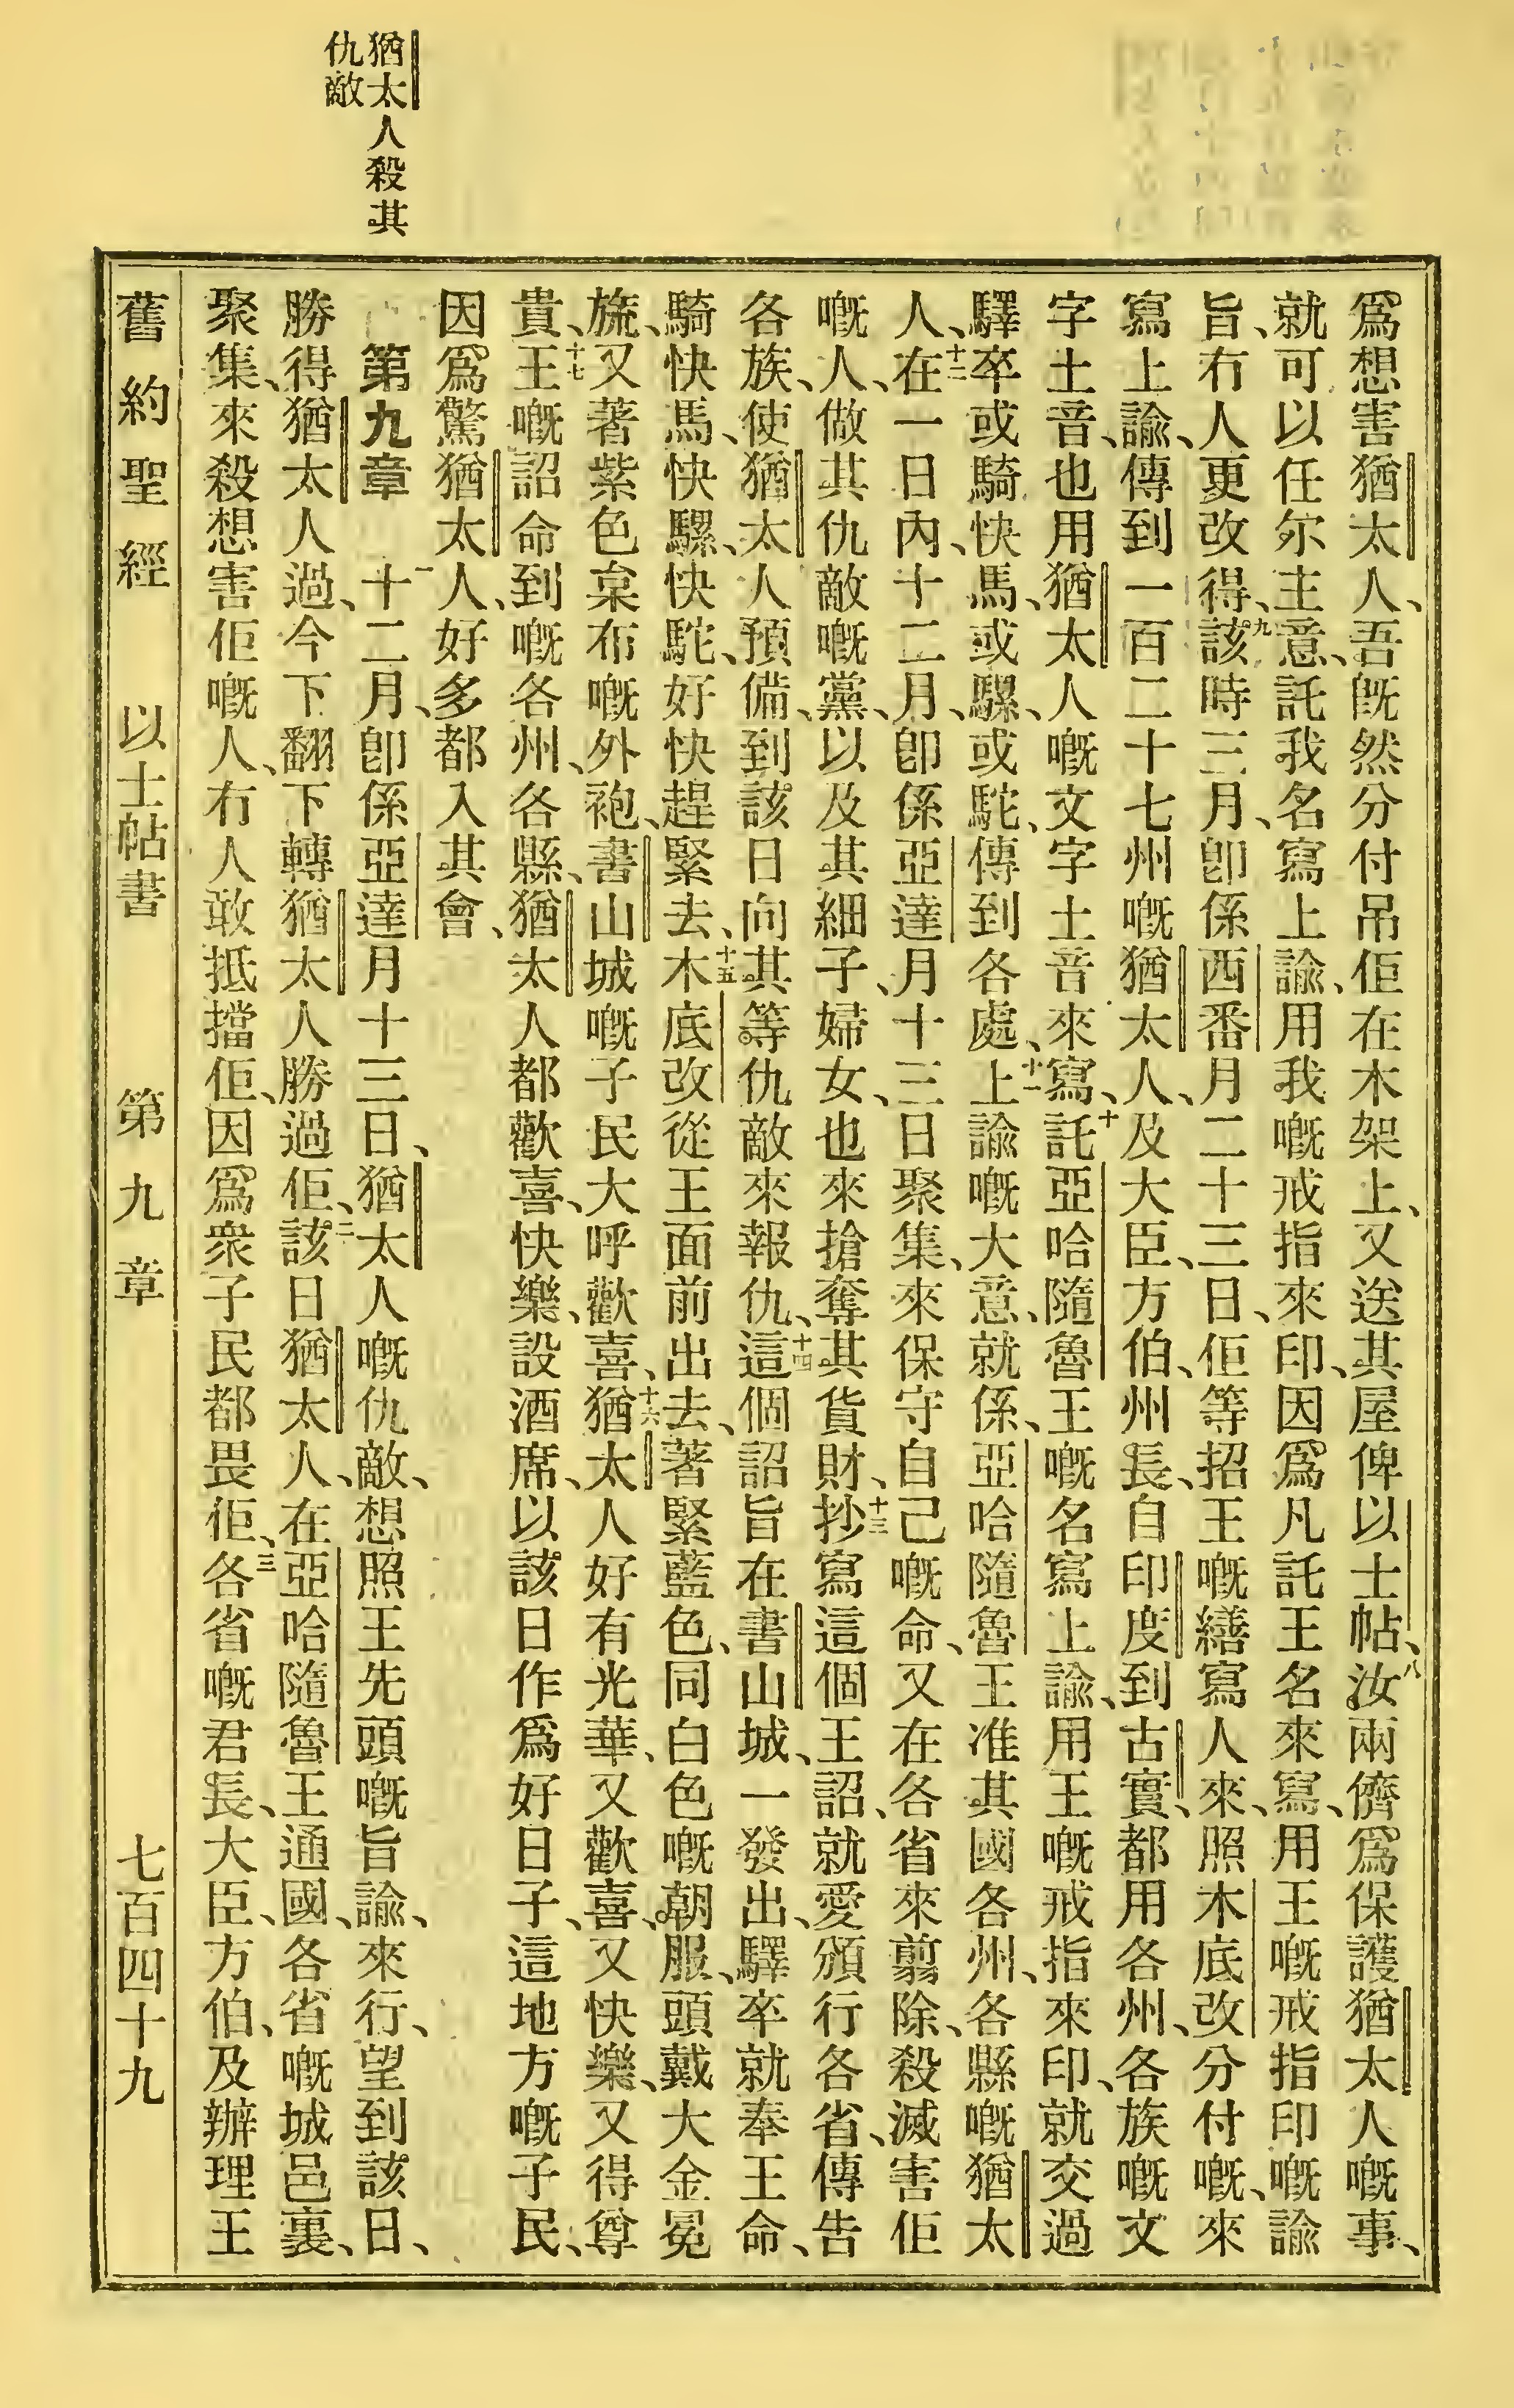 猶太人殺其
仇敵
爲想害猶太人、吾旣然分付吊佢在木架上、又送其屋俾以士帖、八汝兩儕爲保護猶太人嘅事、
就可以任尔主意、託我名寫上諭、用我嘅戒指來印、因爲凡託王名來寫、用王嘅戒指印嘅諭
旨、冇人更改得、九該時三月、卽係西番月二十三日、佢等招王嘅繕寫人來、照木底改分付嘅、來
寫上諭、傳到一百二十七州嘅猶太人、及大臣、方伯、州長、自印度到古實、都用各州、各族嘅文
字土音、也用猶太人嘅文字土音來寫、十託亞哈隨魯王嘅名寫上諭、用王嘅戒指來印、就交過
驛卒或騎快馬、或騾、或駝、傳到各處、十一上諭嘅大意、就係、亞哈隨魯王准其國各州、各縣嘅猶太
人、十二在一日內、十二月、卽係亞達月十三日聚集、來保守自己嘅命、又在各省來翦除、殺滅害佢
嘅人、做其仇敵嘅黨、以及其細子、婦女、也來搶奪其貨財、十三抄寫這個王詔、就愛頒行各省、傳告
各族、使猶太人預備、到該日向其等仇敵來報仇、十四這個詔旨在書山城、一發出、驛卒就奉王命、
騎快馬、快騾、快駝、好快趕緊去、十五木底改從王面前出去、著緊藍色、同白色嘅朝服、頭戴大金冕
旒、又著紫色枲布嘅外袍、書山城嘅子民大呼歡喜、十六猶太人好有光華、又歡喜、又快樂、又得尊
貴、十七王嘅詔命到嘅各州、各縣、猶太人都歡喜、快樂、設酒席、以該日作爲好日子、這地方嘅子民、
因爲驚猶太人、好多都入其會、
第九章　一十二月、卽係亞達月十三日、猶太人嘅仇敵、想照王先頭嘅旨諭、來行、望到該日、
勝得猶太人過、今下翻下轉猶太人勝過佢、二該日猶太人、在亞哈隨魯王通國、各省嘅城邑裏、
聚集、來殺想害佢嘅人、冇人敢抵擋佢、因爲衆子民都畏佢、三各省嘅君長、大臣、方伯、及辦理王
舊約聖經　以士帖書　第九章　七百四十九